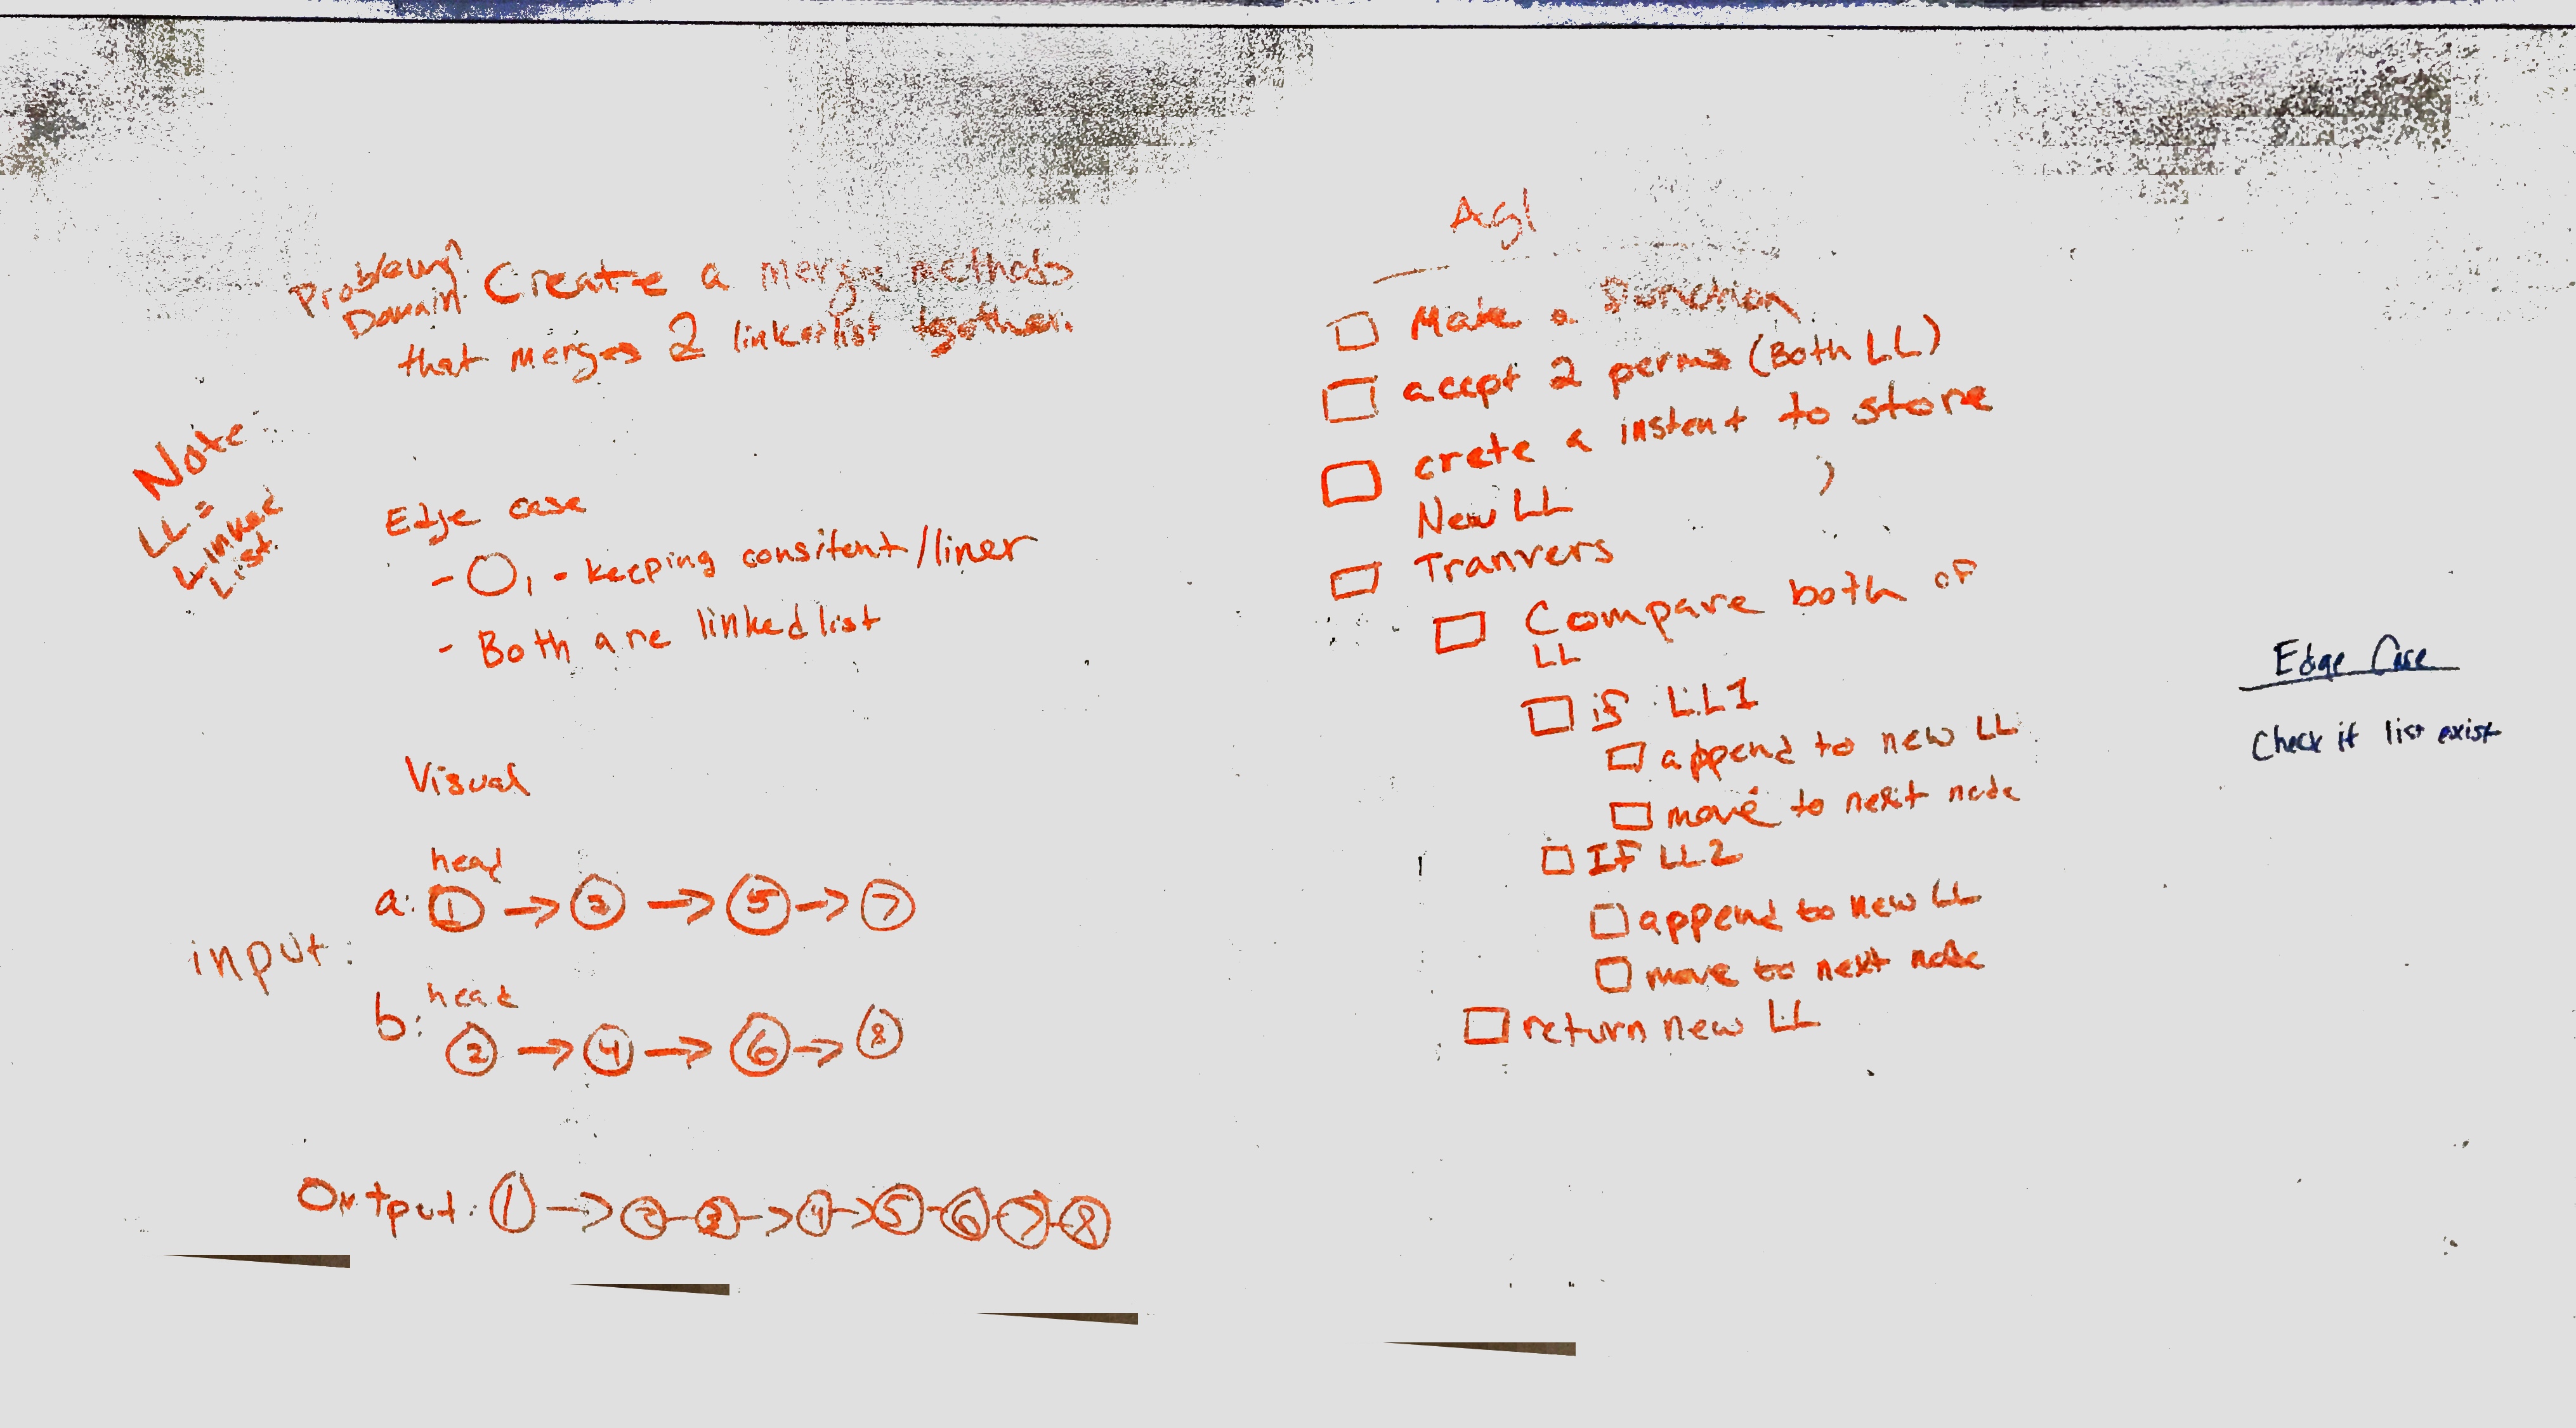 Problem Domain: Create a merge methods
that merges 2 linkedlist together.
Note
LL =
Linked
List.
Edge case
- O, - keeping consitent/liner
- Both are linked list
Visual
input:
head
a: 1 → 3 → 5 → 7
head
b: 2 → 4 → 6 → 8
Output: 1 → 2 - 3 → 4 → 5 - 6 - 7 - 8
Agl
Make a function
accpt 2 perms (Both LL)
crete a instent to store
New LL
Tranvers
Compare both of
LL
if LL1
append to new LL
move to next node
IF LL2
append to new LL
move to next node
return new LL
Edge Case
Check if list exist